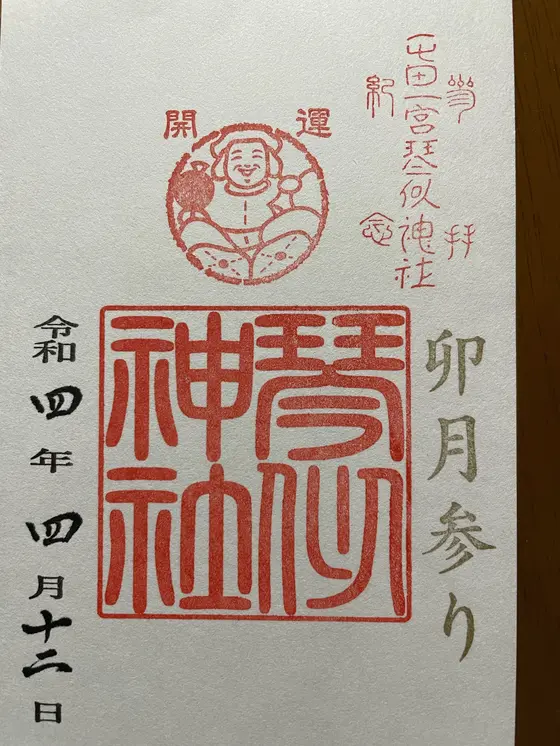 参拝
屯田一宮琴似神社
紀念
開運
卯月参り
琴似
神社
令和四年四月十二日